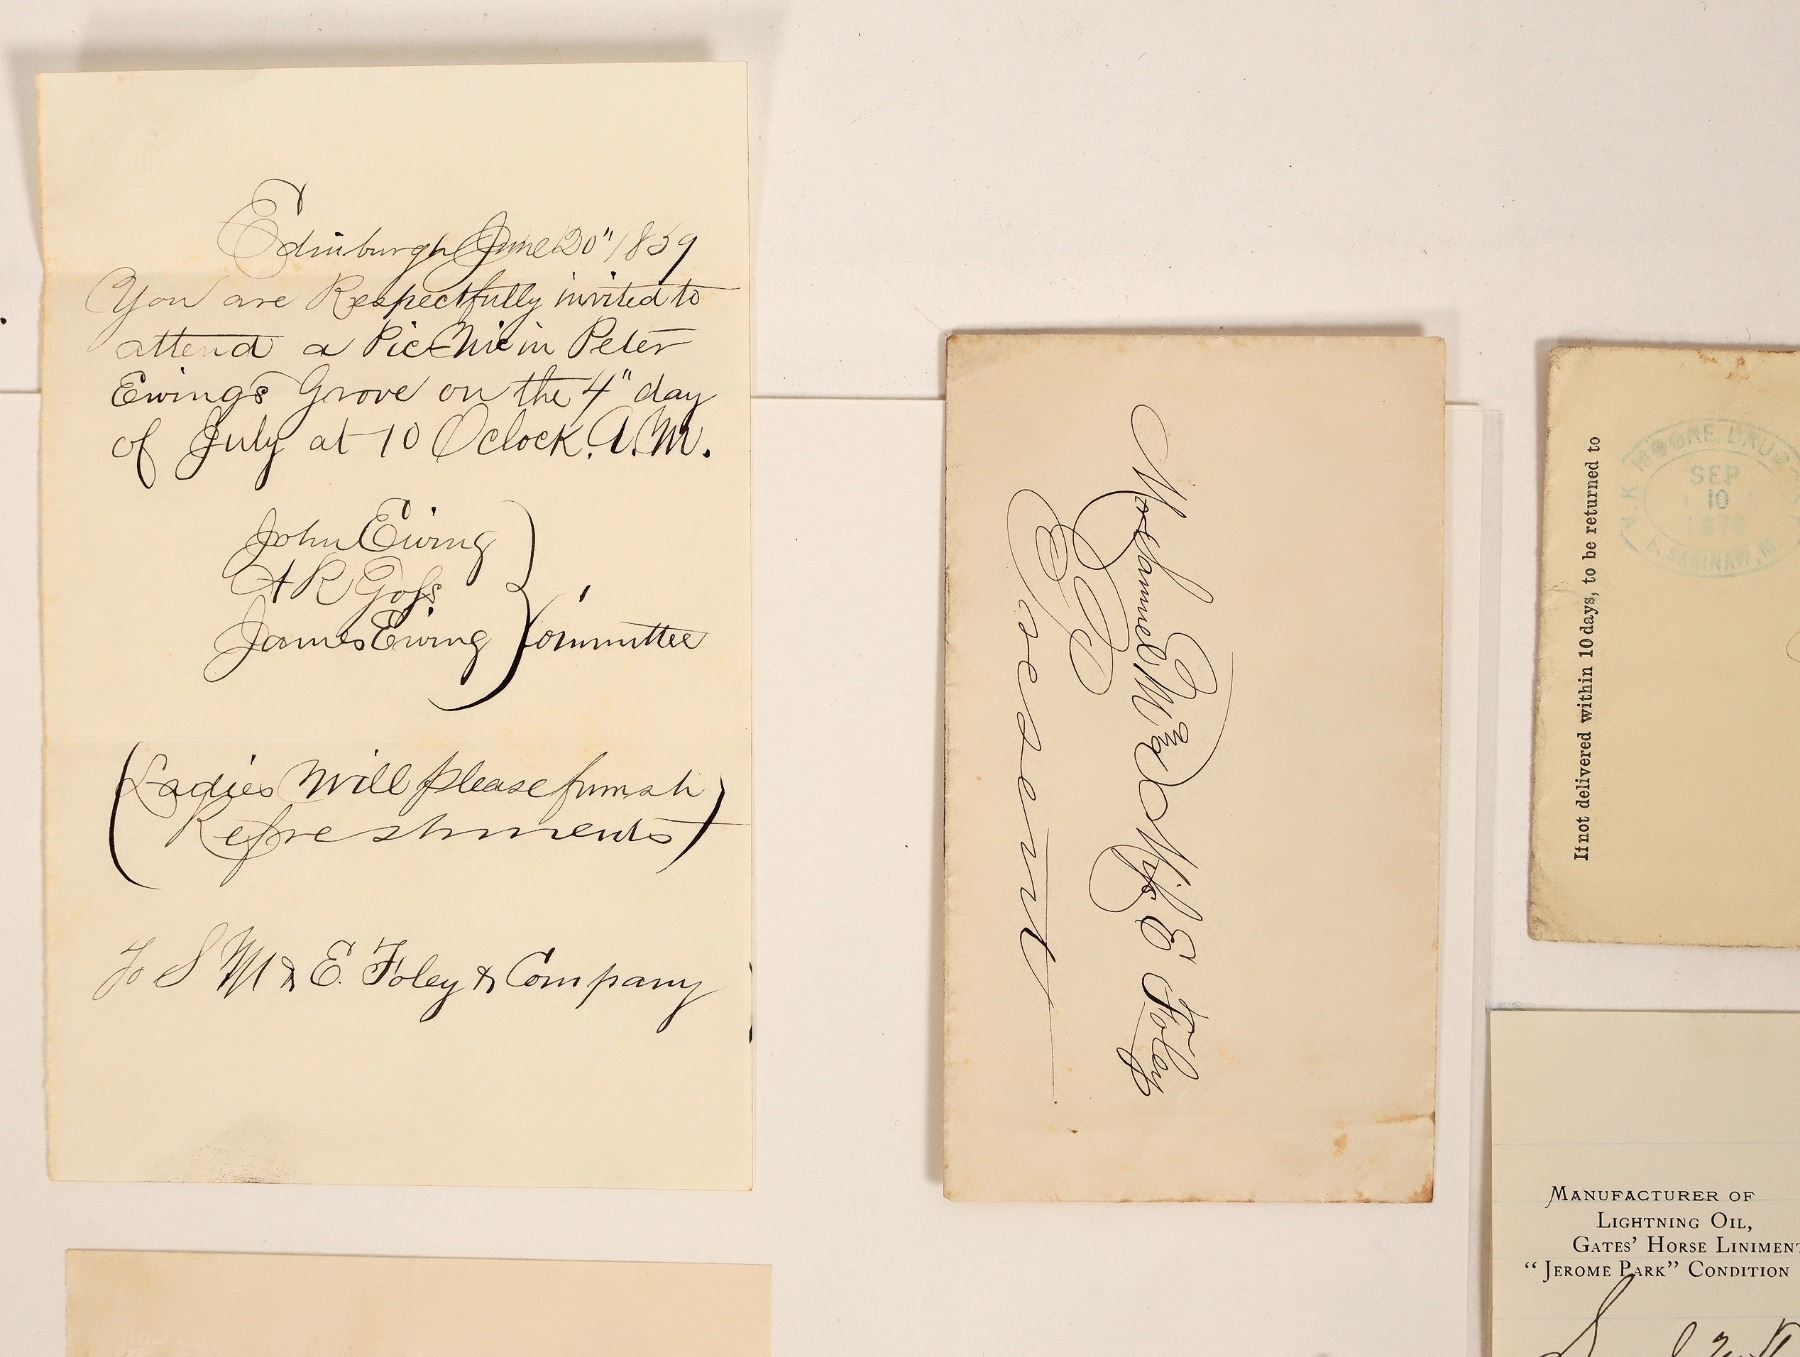 Edinburgh June 20" 1859
You are Respectfully invited to
attend a Pic Nic in Peter
Ewing's Grove on the 4" day
of July at 10 Oclock. A.M.
John Ewing
A R Goss
James Ewing
Committee
(Ladies Will please furnish
Refreshments)
To S M & E. Foley & Company
E Foley
Present
If not delivered within 10 days, to be returned to
MOORE DRUG
SEP
10
E. SAGINAW, M
MANUFACTURER OF
LIGHTNING OIL,
GATES' HORSE LINIMENT
"JEROME PARK" CONDITION